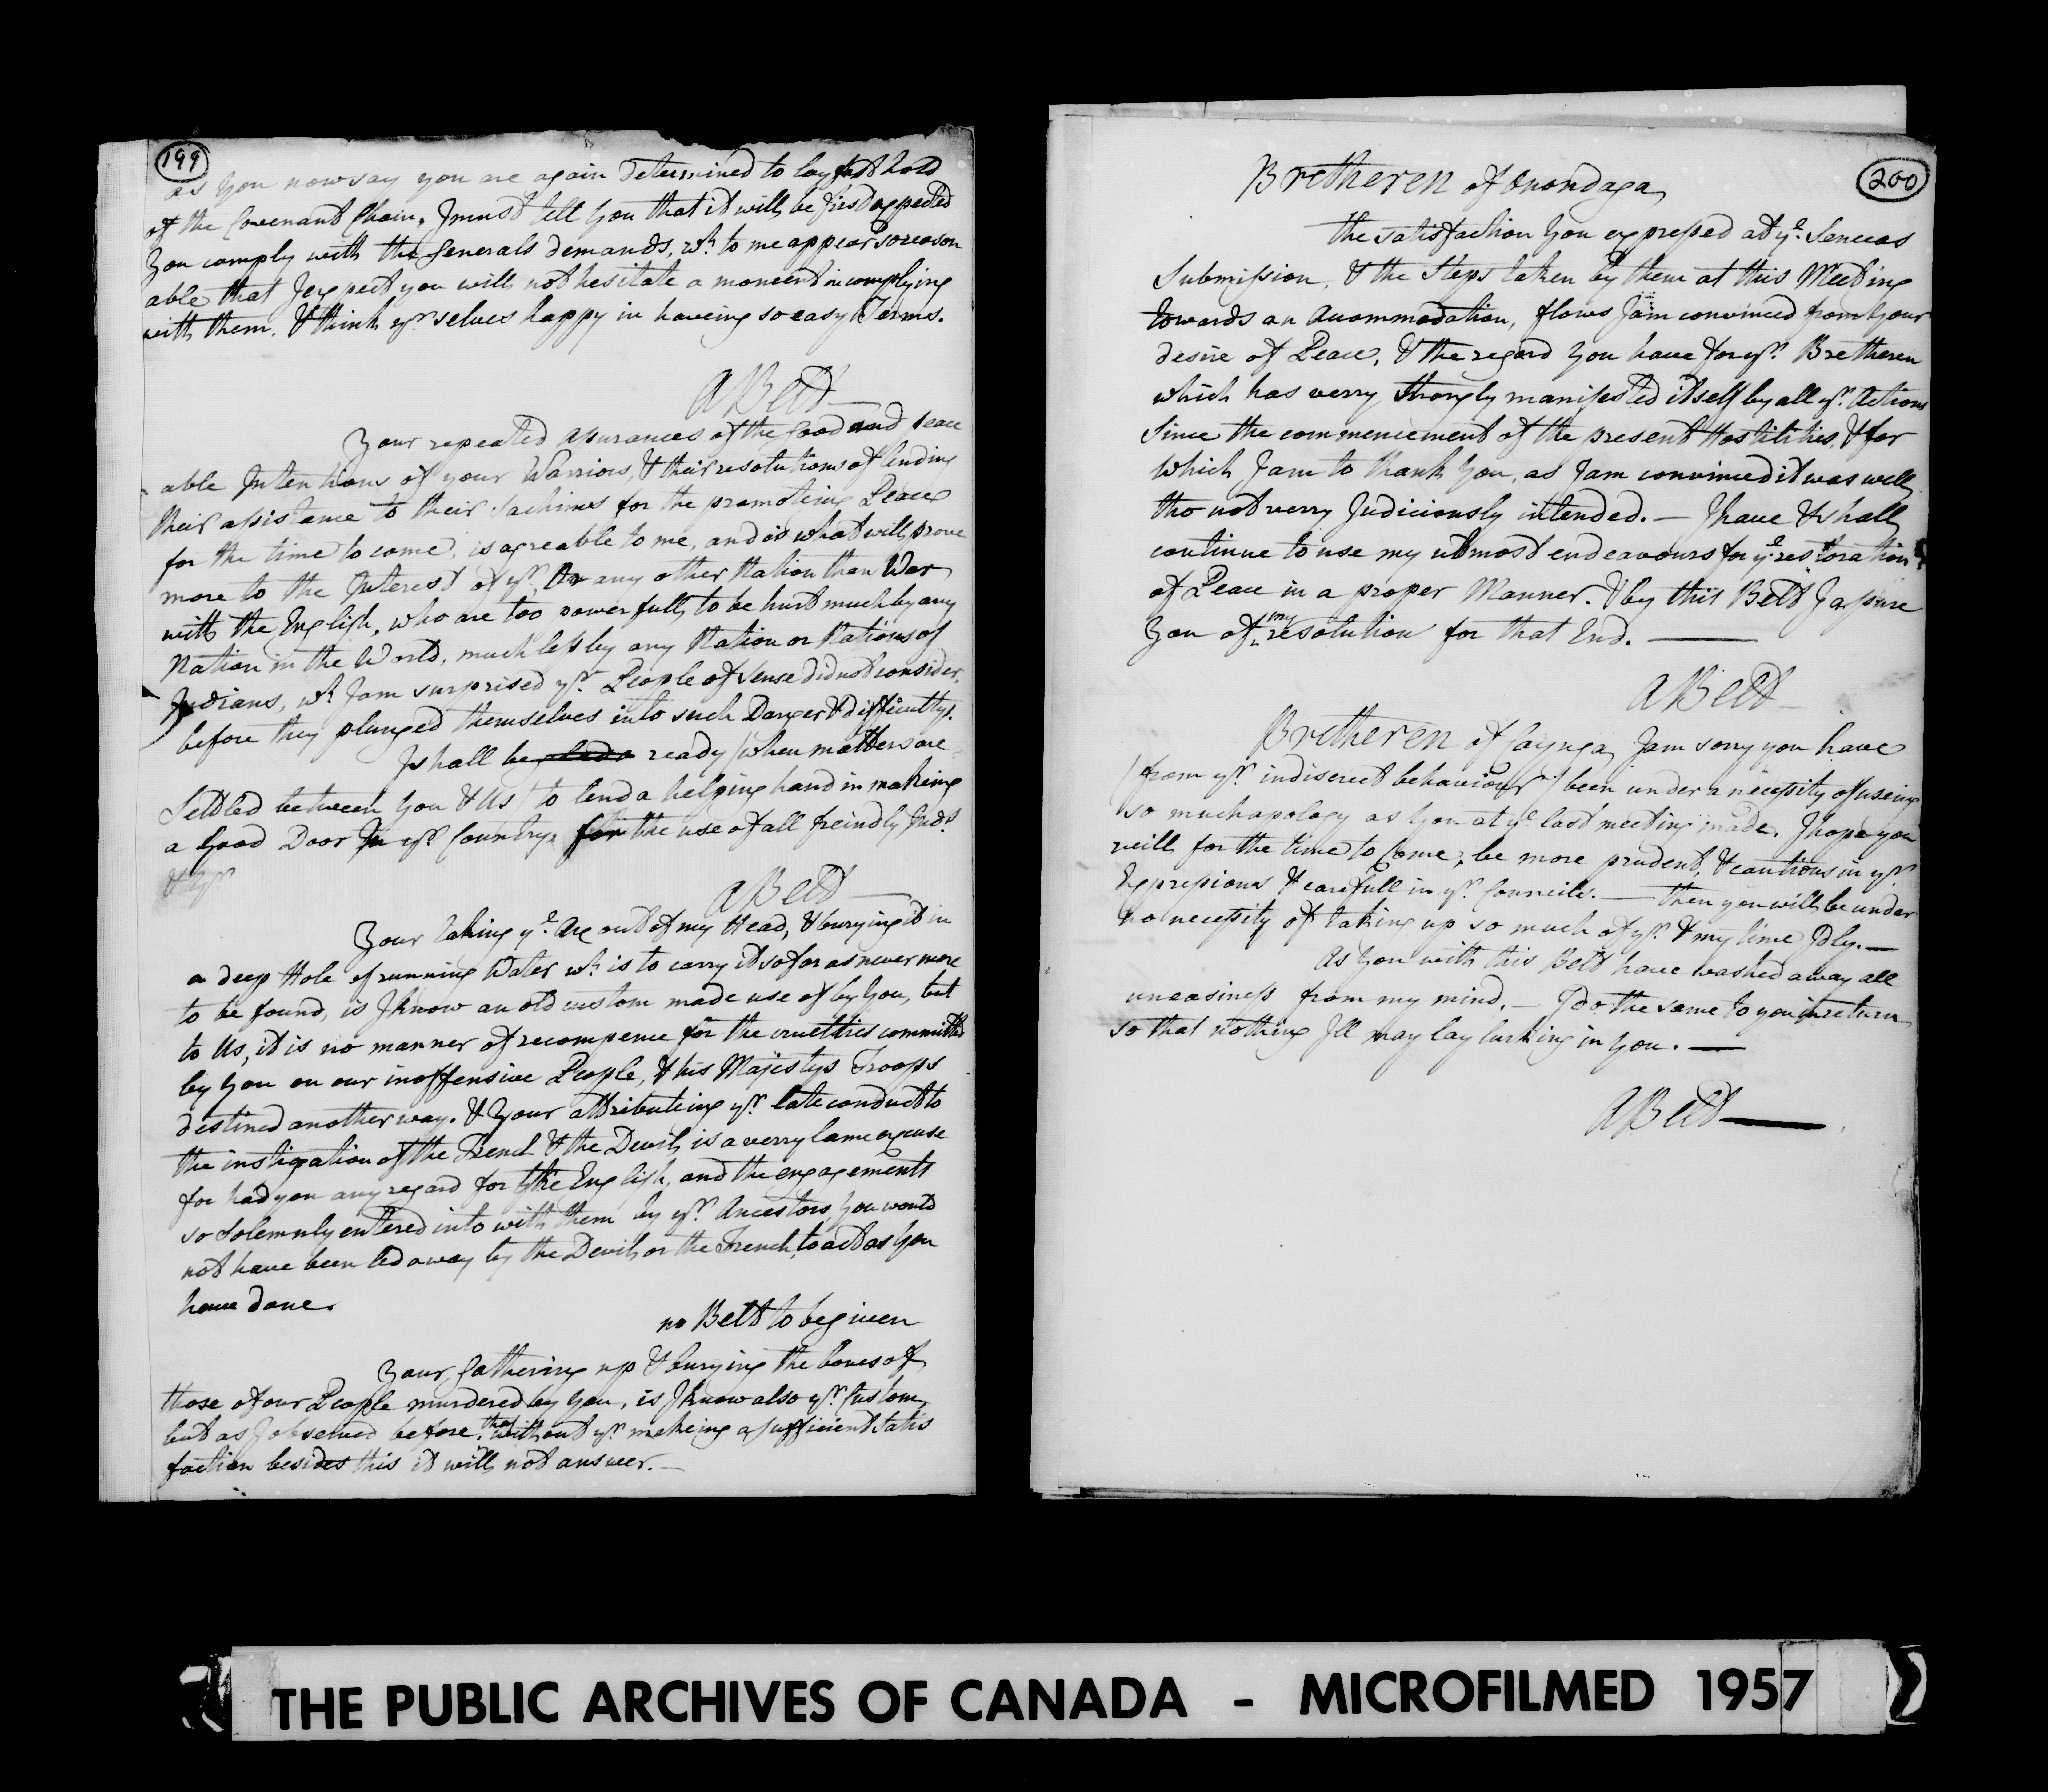 199
as You now say you are again determined to lay fast hold
of the Covenant Chain. I must tell You that it will be first expected
You comply with the Generals demands, wh. to me appear so reason
able that I expect you will not hesitate a moment in complying
with them, & think yr. selves happy in haveing so easy Terms.
A Belt
Your repeated assurances of the Good and peace
able Intentions of your Warriors, & their resolutions of lending
their assistance to their Sachims for the promoteing Peace
for the time to come, is agreable to me, and is what will prove
more to the Interest of yr. Or any other Nation than War
with the English, who are too powerfull to be hurt much by any
Nation in the World, much less by any Nation or Nations of
Indians, wh. I am surprised yr. People of Sense did not consider,
before they plunged themselves into such Danger & difficultys.
I shall be ready (when matters are
Settled between You & Us) to lend a helping hand in makeing
a Good Door In yr. Country for the use of all freindly Inds.
A Belt
Your takeing ye. Axe out of my Head, & burying it in
a deep Hole of running Water wh. is to carry it so far as never more
to be found, is I know an old custom made use of by You, but
to Us, it is no manner of recompence for the cruelties committed
by You on our inoffensive People, & his Majestys Troops
destined another way. & Your attributeing yr. late conduct to
the instigation of the French & the Devil, is a verry lame excuse
for had you any regard for the English, and the engagements
so solemnly entered into with them by yr. Ancestors, You would
not have been led away by the Devil, or the French, to act as You
have done.
no Belt to be given
Your Gathering up & burying the bones of
those of our People murdered by You, is I know also yr. Custom,
but as I observed before, that without yr. makeing a sufficient Satis
faction besides this it will not answer.—
200
Bretheren of Onondaga
the satisfaction You expressed at ye. Senecas
Submission, & the Steps taken by them at this Meeting
towards an Accommodation, flows I am convinced from Your
desire of Peace, & the regard You have for yr. Bretheren
which has verry strongly manifested itself by all yr. Actions
Since the commencement of the present Hostilities, & for
which I am to thank You, as I am convinced it was well
tho not verry Judiciously intended.— I have & shall
continue to use my utmost endeavours for ye. restoration
of Peace in a proper Manner. & by this Belt I assure
You of my resolution for that End.—
A Belt
Bretheren of Cayuga I am sorry you have
(from yr. indiscreet behaviour) been under a necessity of useing
so much apology as You at ye. last meeting made. I hope you
will for the time to Come, be more prudent, & cautious in yr.
Expressions & carefull in yr. Councils.— then you will be under
no necessity of takeing up so much of yr. & my time Idly.—
As You with this Belt have washed away all
uneasiness from my mind,— I do the same to you in return
so that nothing Ill may lay lurking in You.—
A Belt—
THE PUBLIC ARCHIVES OF CANADA - MICROFILMED 1957